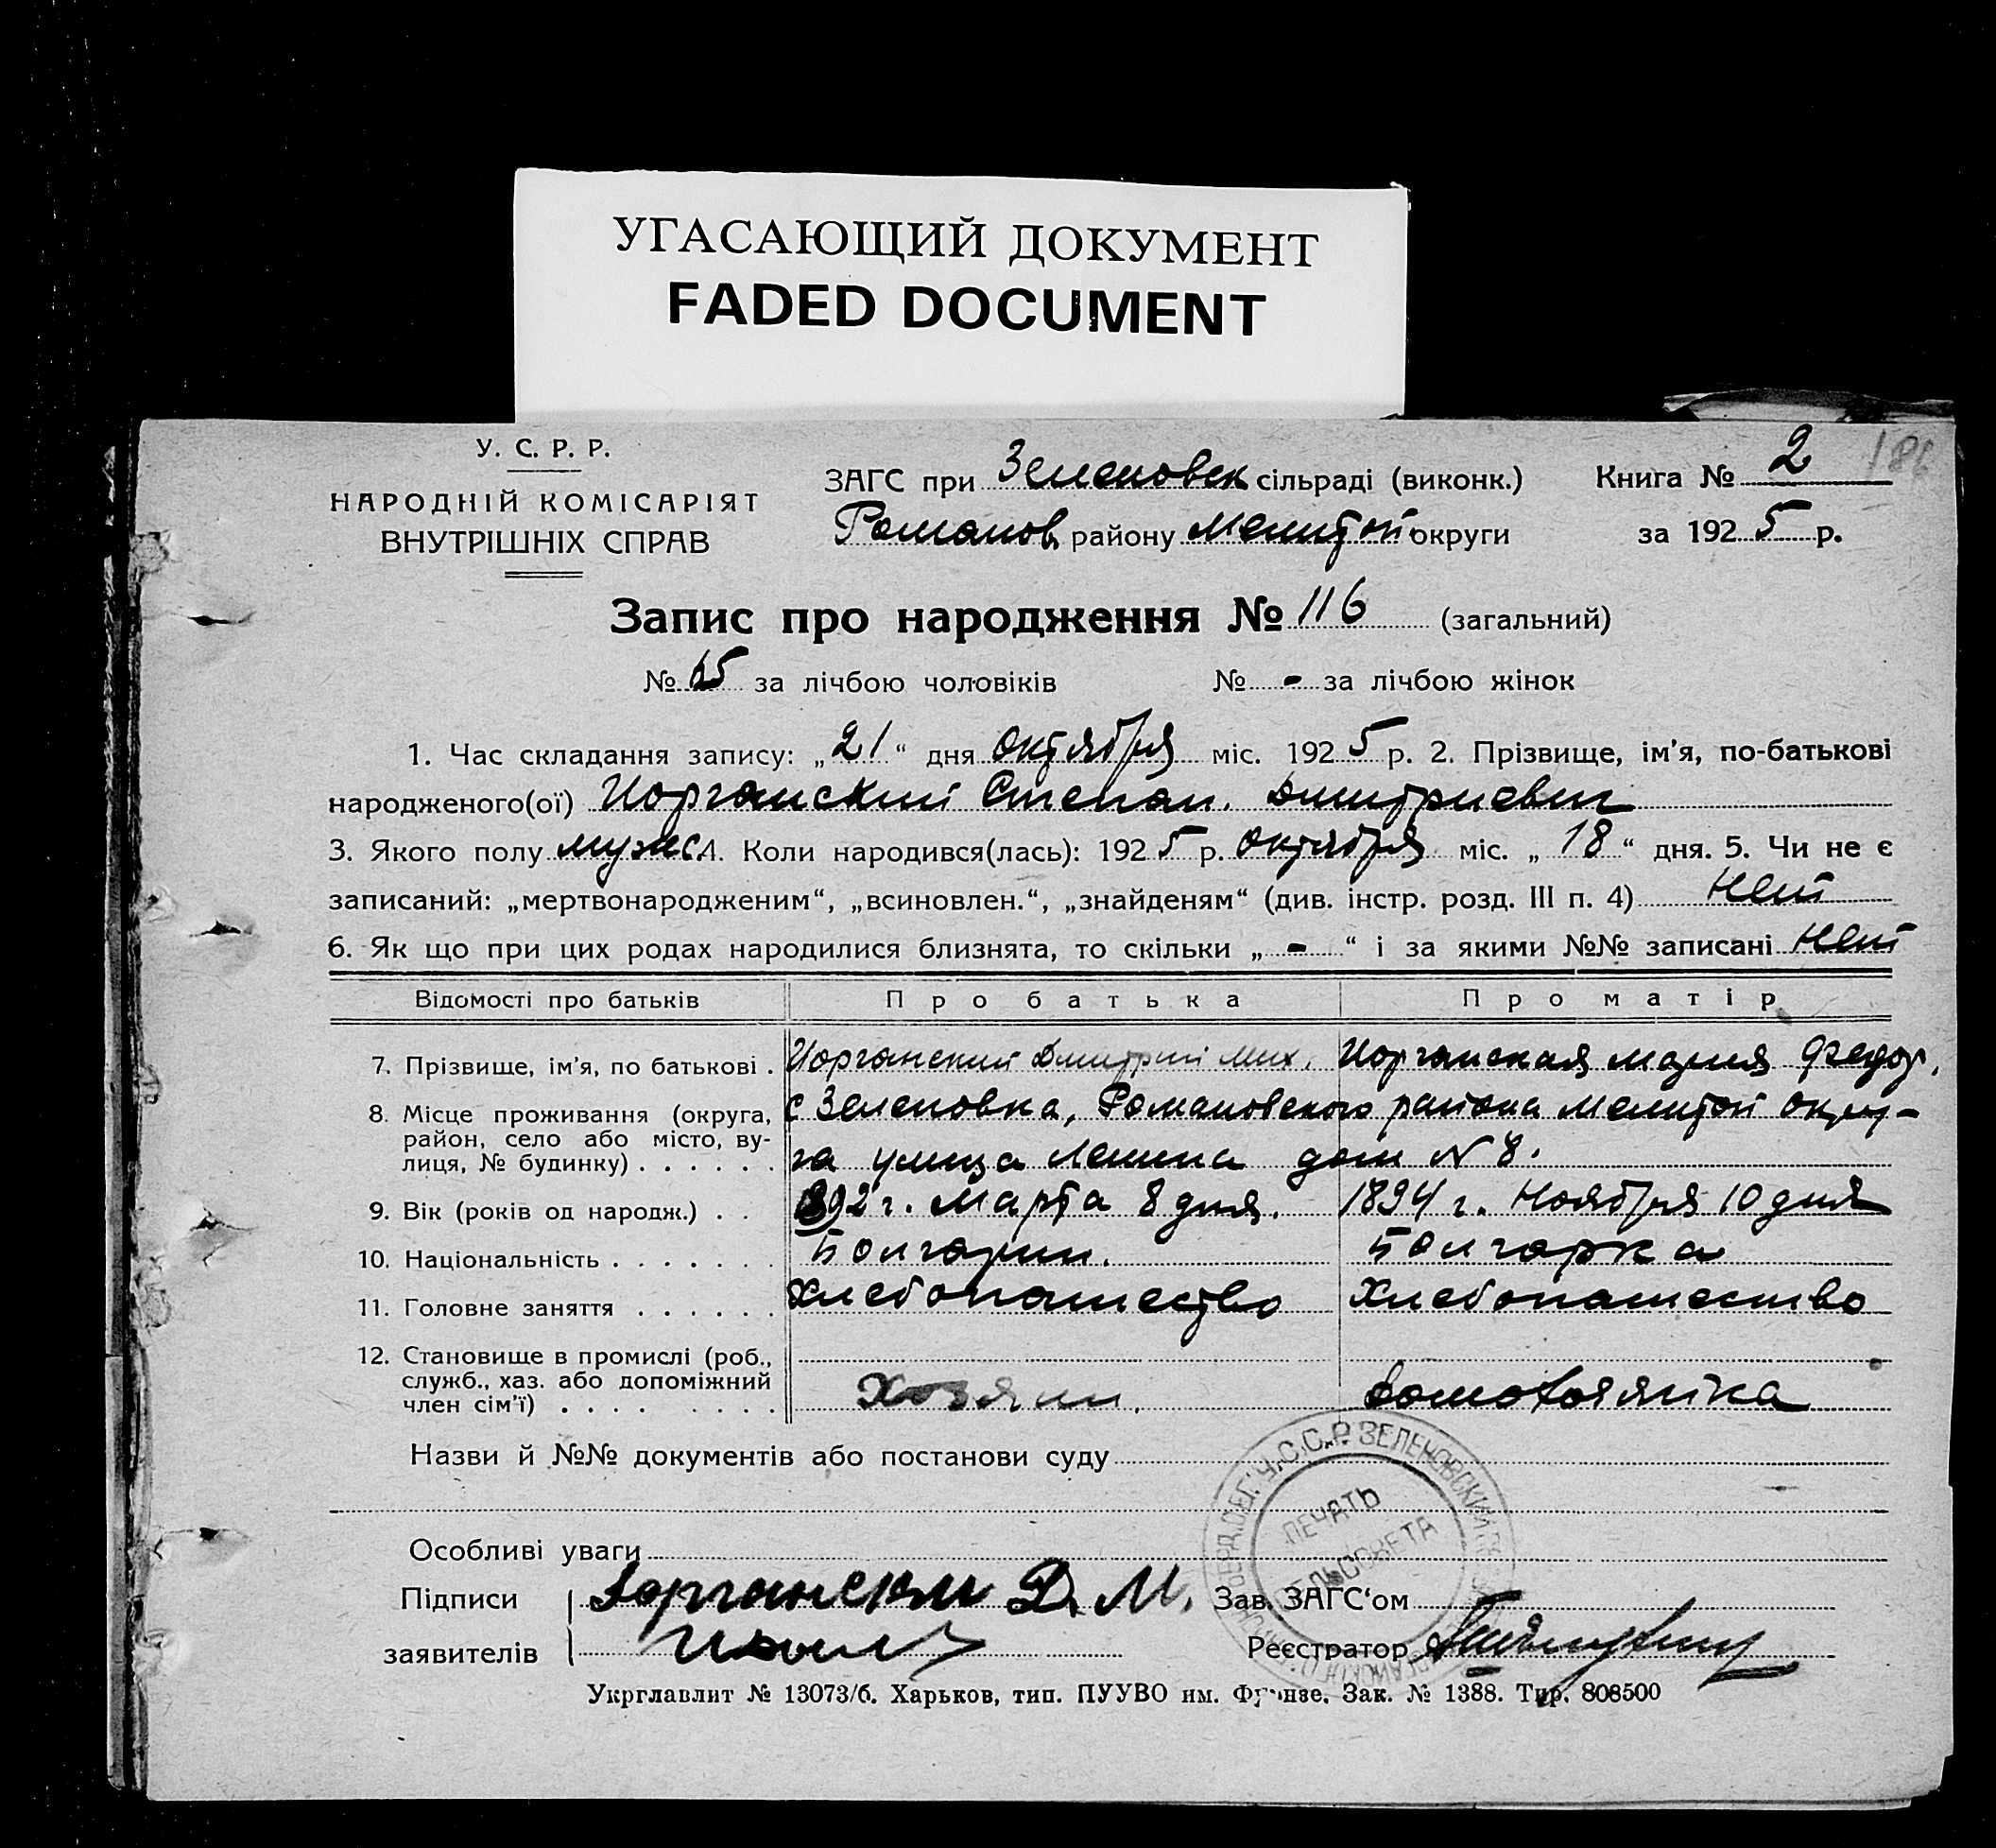 УГАСАЮЩИЙ ДОКУМЕНТ
FADED DOCUMENT
186
У. С. Р. Р.
НАРОДНІЙ КОМІСАРІЯТ
ВНУТРІШНІХ СПРАВ
ЗАГС при Зеленовск сільраді (виконк.)
Романов району Мелитой округи
Книга № 2
за 1925 р.
Запис про народження № 116 (загальний)
№ 65 за лічбою чоловіків № - за лічбою жінок
1. Час складання запису: „21“ дня октября міс. 1925 р. 2. Прізвище, ім’я, по-батькові
народженого(ої) Иорганский Степан. Дмитриевич
3. Якого полу мужс. 4. Коли народився(лась): 1925 р. октября міс. „18“ дня. 5. Чи не є
записаний: „мертвонародженим“, „всиновлен.“, „знайденям“ (див. інстр. розд. III п. 4) Нет
6. Як що при цих родах народилися близнята, то скільки „-“ і за якими №№ записані Нет
Відомості про батьків Про батька Про матір
7. Прізвище, ім’я, по батькові . Иорганский Дмитрий Мих. Иорганская Мария Федор.
8. Місце проживання (округа, район, село або місто, вулиця, № будинку) . . . . . . с Зеленовка, Романовского района Мелитой окру-
га улица Ленина дом № 8.
9. Вік (років од народж.) . . 1892 г. Марта 8 дня. 1894 г. Ноября 10 дня
10. Національність . . . . . . . Болгарин. Болгарка
11. Головне заняття . . . . . . Хлебопашество Хлебопашество
12. Становище в промислі (роб., служб., хаз. або допоміжний член сім’ї) . . . . . . . . Хозяин. домохозяйка
Назви й №№ документів або постанови суду
Особливі уваги
Підписи заявителів Иорганский Д. М.
Зав. ЗАГС‘ом
Реєстратор
У.С.С.Р. ЗЕЛЕНОВСКИЙ
ПЕЧАТЬ
СЕЛЬСОВЕТА
Укрглавлит № 13073/6. Харьков, тип. ПУУВО им. Фрунзе. Зак. № 1388. Тир. 808500